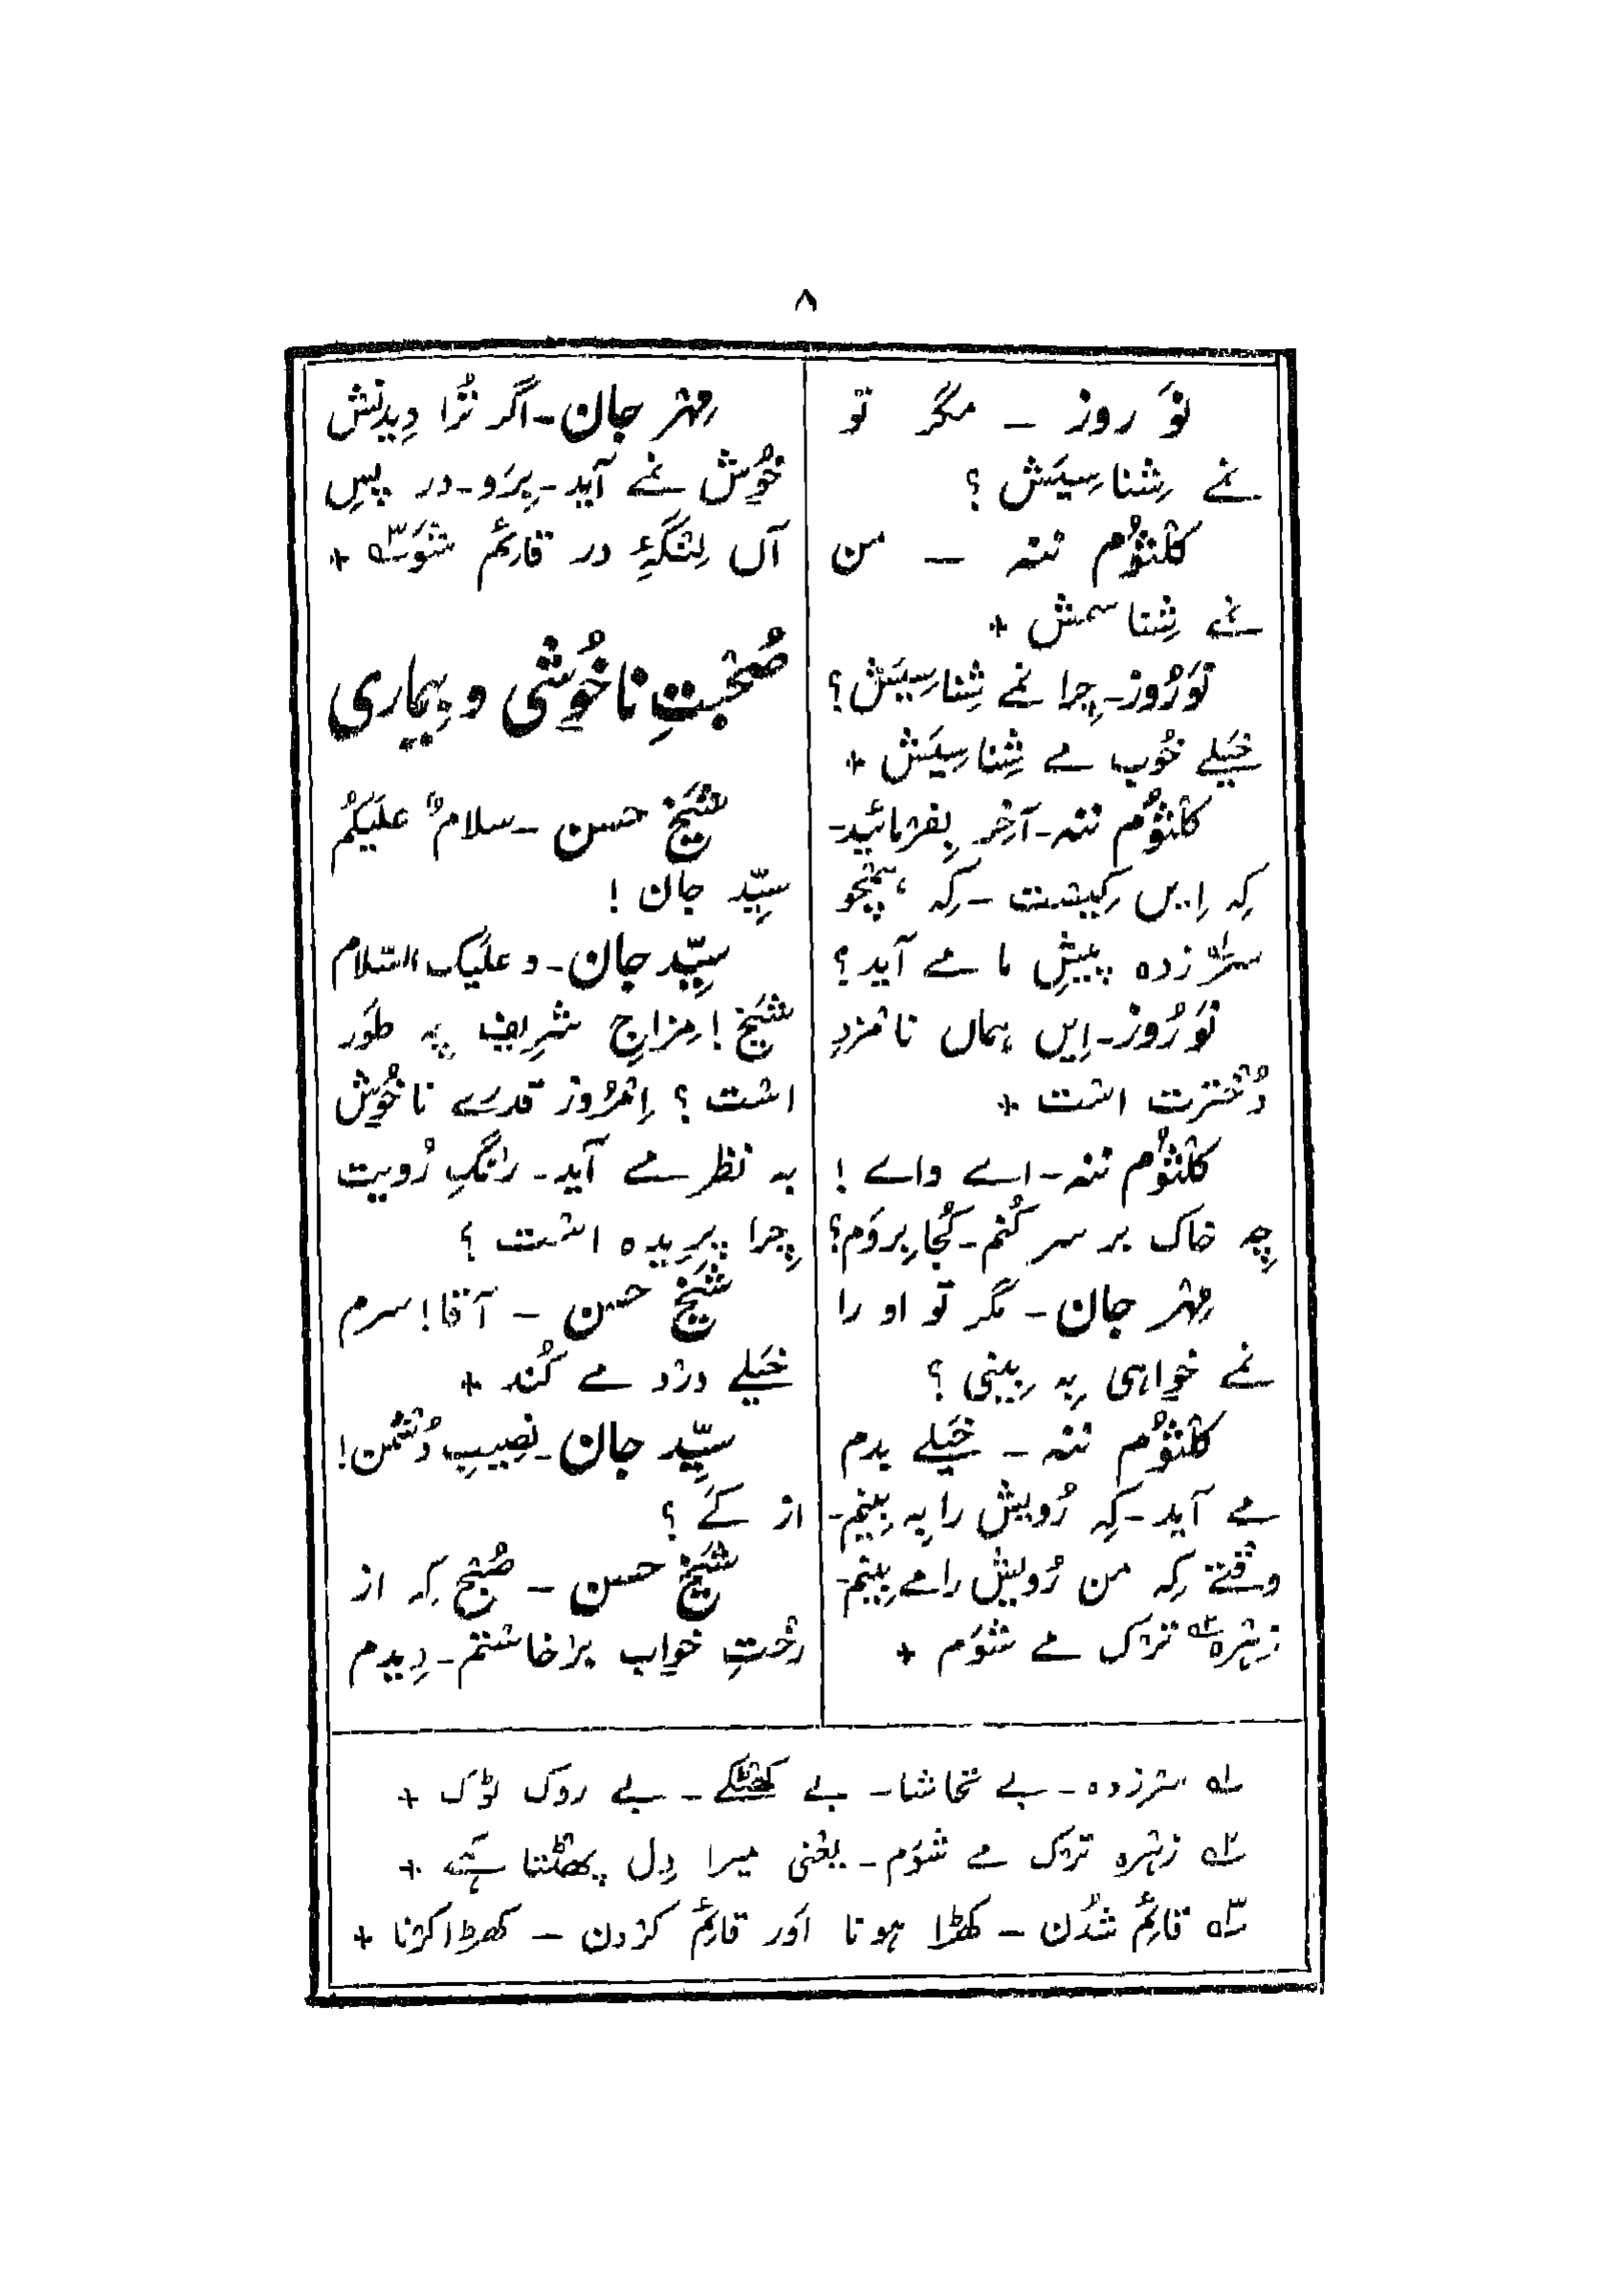 ۸
نَو روز ـ مگر تو
نمے شِناسِیَش ؟
کلثوُم ننہ ـ من
نمے شِناسمش +
نَورُوز ـ چِرا نمے شِناسِیَش ؟
خَیلے خُوب مے شِناسِیَش +
کلثوُم ننہ ـ آخِر بِفرمائید ـ
کہ اِیں کِیست ـ کِہ ہمچو
سرلہ زدہ پیشِ ما مے آید ؟
نَورُوز ـ اِیں ہماں نامزدِ
دُخترت است +
کلثوُم ننہ ـ اے واے !
چِہ خاک بر سر کُنم ـ کُجا بِروَم ؟
مِہر جان ـ مگر تو او را
نمے خواہی بِہ بِینی ؟
کلثوُم ننہ ـ خَیلے بدم
مے آید ـ کِہ رُویش را بِہ بِینم ـ
وقتے کِہ من رُویش را مے بِینم ـ
زہرہ۲ ترک مے شوَم +
مِہر جان ـ اگر تُرا دِیدنش
خُوش نمے آید ـ بِرَو ـ در پسِ
آں لِنگۂِ در قائِم شوَ۳ +
صُحبتِ ناخُوشی و بِیماری
شَیخ حسن ـ سلامٌ علَیکُم
سیِّد جان !
سیِّد جان ـ و علَیک السّلام
شَیخ ! مِزاجِ شرِیف چہ طَور
است ؟ اِمرُوز قدرے ناخُوش
بہ نظر مے آید ـ رنگِ رُویت
چِرا پرِیدہ است ؟
شَیخ حسن ـ آقا ! سرم
خَیلے درد مے کُند +
سیِّد جان ـ نصِیبِ دُشمن !
از کَے ؟
شَیخ حسن ـ صُبح کِہ از
رختِ خواب برخاستم ـ دِیدم
۱ سرزدہ ـ بے تحاشا ـ بے کھٹکے ـ بے روک ٹوک +
۲ زہرہ ترک مے شوَم ـ یعنی میرا دِل پھٹتا ہَے +
۳ قائِم شدُن ـ کھڑا ہونا اَور قائِم کردن ـ کھڑا کرنا +